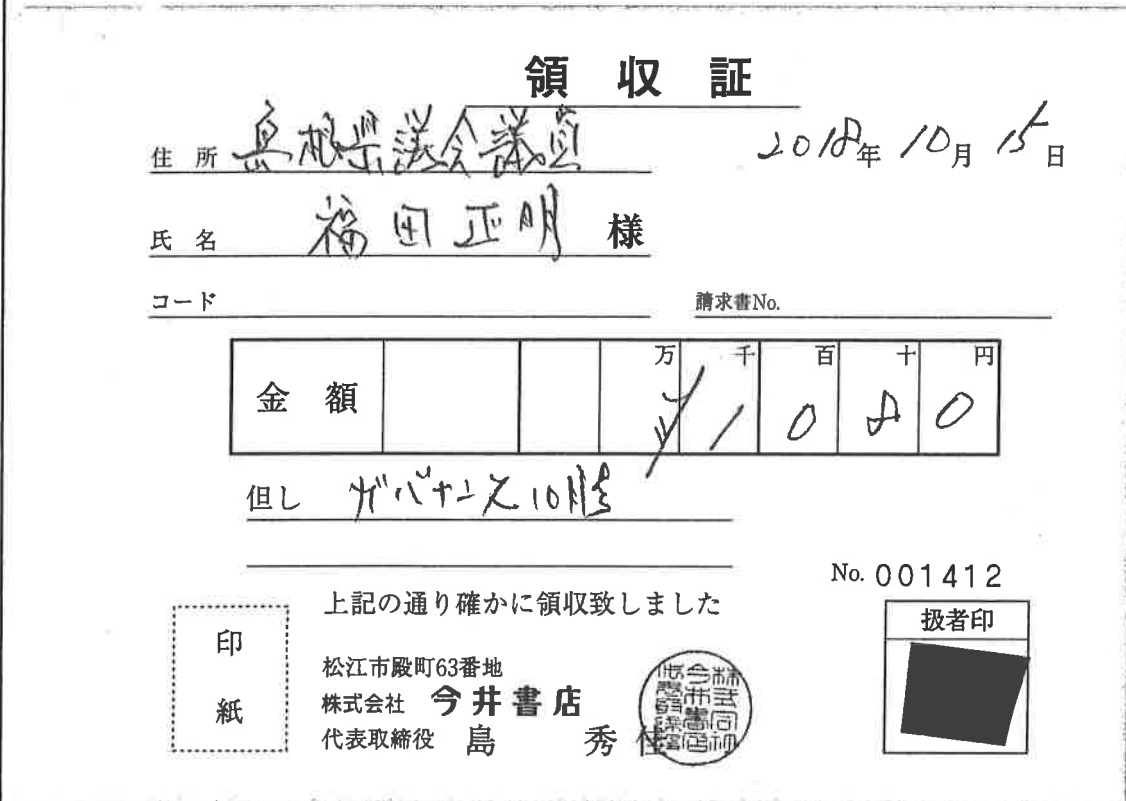 領収証
住所 島根県議会議員
2018年 10月 15日
氏名 福田正明 様
コード
請求書No.
金額 万 千 百 十 円
¥1080
但し ガバナンス10月号
No. 001412
上記の通り確かに領収致しました
扱者印
印紙
松江市殿町63番地
株式会社 今井書店
代表取締役 島 秀佳